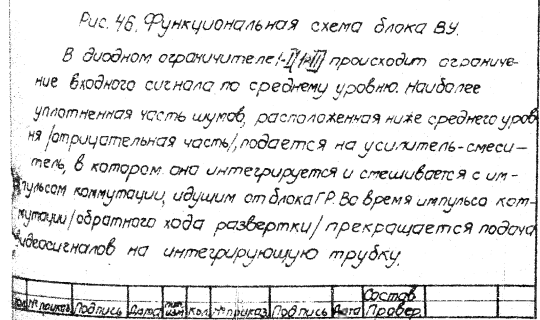 Рис. 46. Функциональная схема блока ВУ.
В диодном ограничителе происходит ограниче-
ние входного сигнала по среднему уровню. Наиболее
уплотненная часть шумов, расположенная ниже среднего уров
ня /отрицательная часть/, подается на усилитель-смеси-
тель, в котором она интегрируется и смешивается с им-
пульсом коммутации, идущим от блока ГР. Во время импульса ком-
мутации /обратного хода развертки/ прекращается подача
видеосигналов на интегрирующую трубку.
Состав.
№ приказ Подпись Дата Кол. № приказ Подпись Дата Провер.